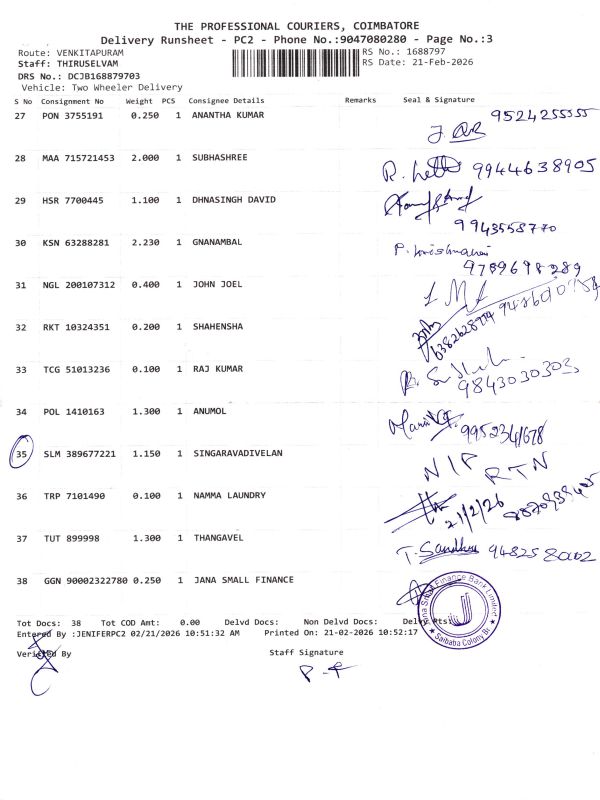 THE PROFESSIONAL COURIERS, COIMBATORE
Delivery Runsheet - PC2 - Phone No.:9047080280 - Page No.:3
Route: VENKITAPURAM RS No.: 1688797
Staff: THIRUSELVAM RS Date: 21-Feb-2026
DRS No.: DCJB168879703
Vehicle: Two Wheeler Delivery
S No Consignment No Weight PCS Consignee Details Remarks Seal & Signature
27 PON 3755191 0.250 1 ANANTHA KUMAR 9524255555
28 MAA 715721453 2.000 1 SUBHASHREE R. 9944638905
29 HSR 7700445 1.100 1 DHNASINGH DAVID
9943558770
30 KSN 63288281 2.230 1 GNANAMBAL P.
9789698289
31 NGL 200107312 0.400 1 JOHN JOEL
32 RKT 10324351 0.200 1 SHAHENSHA
33 TCG 51013236 0.100 1 RAJ KUMAR
9843030303
34 POL 1410163 1.300 1 ANUMOL
9952341678
35 SLM 389677221 1.150 1 SINGARAVADIVELAN N/P RTN
36 TRP 7101490 0.100 1 NAMMA LAUNDRY 21/2/26
37 TUT 899998 1.300 1 THANGAVEL T. Sandhya 9482580002
38 GGN 90002322780 0.250 1 JANA SMALL FINANCE
Jana Small Finance Bank Limited
Saibaba Colony Br.
Tot Docs: 38 Tot COD Amt: 0.00 Delvd Docs: Non Delvd Docs: Delvy Rts:
Entered By :JENIFERPC2 02/21/2026 10:51:32 AM Printed On: 21-02-2026 10:52:17
Verified By Staff Signature